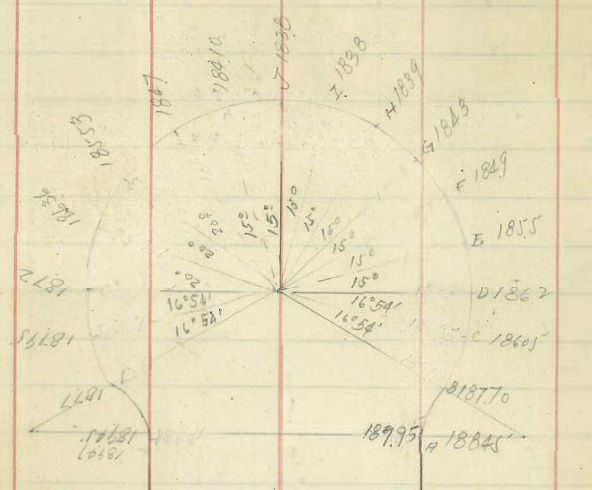 J 1838
I 1838
H 1839
G 1843
F 1849
E 1855
D 1862
C 18605
B 18770
189.95
A 18845
1847
18410
1872
1877
15°
15°
15°
15°
15°
15°
15°
15°
20°
20°
20°
16°54'
16°54'
16°54'
16°54'